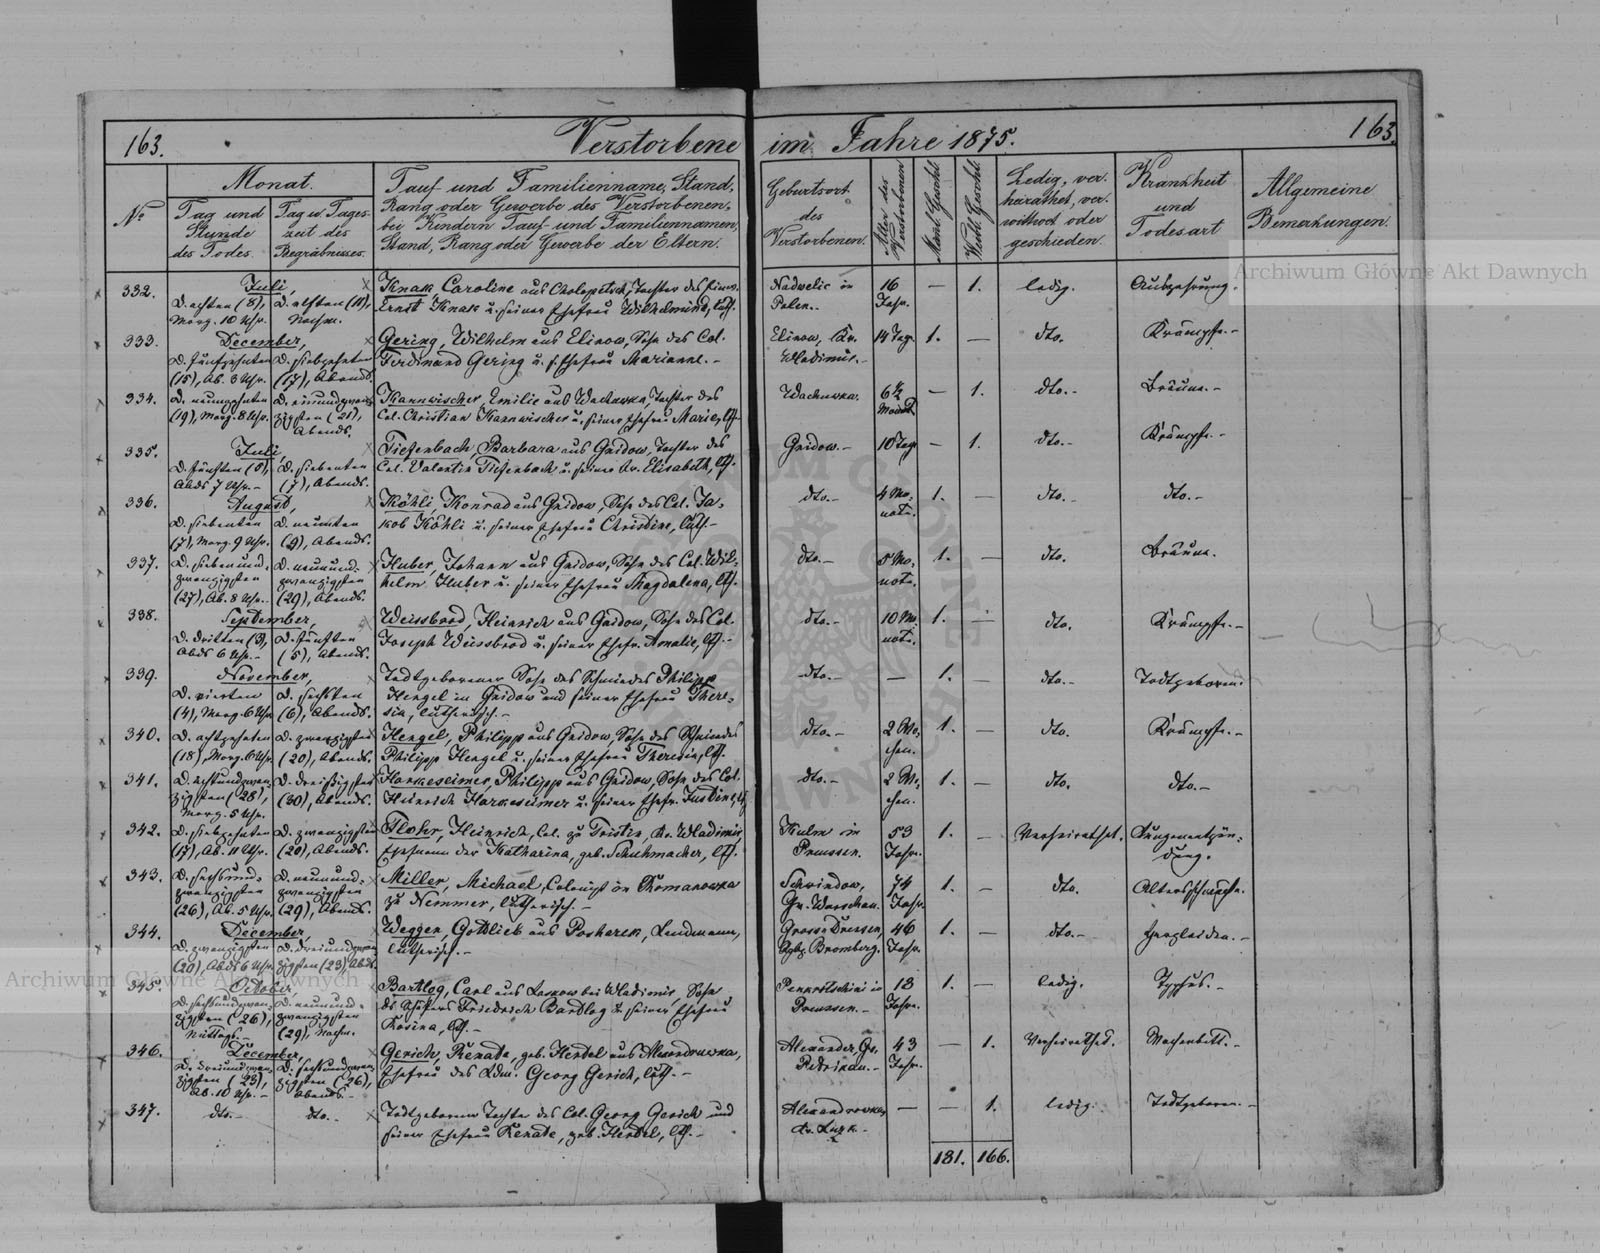 163.
Verstorbene im Jahre 1875.
163.
No
Monat.
Tag und Stunde des Todes.
Tag u. Tageszeit des Begräbnisses.
Tauf und Familienname, Stand,
Rang oder Gewerbe des Verstorbenen,
bei Kindern Tauf- und Familiennamen,
Stand, Rang oder Gewerbe der Eltern.
Geburtsort
des
Verstorbenen.
Alter des Verstorbenen
Männl. Geschl.
Weibl. Geschl.
Ledig, ver-
heirathet, ver-
wittwet oder
geschieden.
Krankheit
und
Todesart
Allgemeine
Bemerkungen.
332.
Juli,
D. achten (8),
Morg. 10 Uhr.
D. elften (11),
Nachm.
Knak, Caroline aus Tochter des
Ernst Knak u. seiner Ehefrau Wilhelmine, luth.
Nadwelic in
Polen.
16
Jahr.
—
1.
ledig.
Auszehrung.
333.
December,
D. fünfzehnten
(15), Ab. 3 Uhr.
D. siebzehnten
(17), Abends.
Gering, Wilhelm aus Elinow, Sohn des Col.
Ferdinand Gering u. s. Ehefrau Marianne. —
Elinow, Kr.
Wladimir. —
14 Tage
1.
—
dto.
Krämpfe. —
334.
D. neunzehnten
(19), Morg. 8 Uhr.
D. einundzwan-
zigsten (21),
Abends.
Kannwischer, Emilie aus Wachuwka, Tochter des
Col. Christian Kannwischer u. seiner Ehefrau Marie, lth.
Wachuwka.
6½
Monat
—
1.
dto. —
Bräune. —
335.
Juli,
D. fünften (5),
Abds 7 Uhr. —
D. siebenten
(7), Abends.
Tiefenbach, Barbara aus Gnidow, Tochter des
Col. Valentin Tiefenbach u. seiner Fr. Elisabeth, lth.
Gnidow. —
10 Tage
—
1.
dto. —
Krämpfe. —
336.
August,
D. siebenten
(7), Morg. 9 Uhr.
D. neunten
(9), Abends.
Köhli, Konrad aus Gnidow, Sohn des Col. Ja-
kob Köhli u. seiner Ehefrau Christine, luth. —
dto. —
4 Mo-
nate.
1.
—
dto. —
dto. —
337.
D. siebenund-
zwanzigsten
(27), Ab. 8 Uhr.
D. neunund-
zwanzigsten
(29), Abends.
Huber, Johann aus Gnidow, Sohn des Col. Wil-
helm Huber u. seiner Ehefrau Magdalena, lth.
dto. —
5 Mo-
nate.
1.
—
dto.
Bräune.
338.
September,
D. dritten (3),
Abds 6 Uhr. —
D. fünften
(5), Abends.
Weissbrod, Heinrich aus Gnidow, Sohn des Col.
Joseph Weissbrod u. seiner Ehefr. Amalie, lth. —
dto. —
10 Mo-
nate.
1.
—
dto.
Krämpfe. —
339.
November,
D. vierten
(4), Morg. 6 Uhr
D. sechsten
(6), Abends.
Todtgeborener Sohn des Schmiedes Philipp
Hengel in Gnidow und seiner Ehefrau There-
sia, lutherisch. —
dto. —
—
1.
—
dto. —
Todtgeboren.
340.
D. achtzehnten
(18), Morg. 6 Uhr.
D. zwanzigsten
(20), Abends.
Hengel, Philipp aus Gnidow, Sohn des Schmiedes
Philipp Hengel u. seiner Ehefrau Theresia, lth.
dto. —
2 Wo-
chen.
1.
—
dto.
Krämpfe. —
341.
D. achtundzwan-
zigsten (28),
Morg. 5 Uhr.
D. dreißigsten
(30), Abends.
Harkeseimer, Philipp aus Gnidow, Sohn des Col.
Heinrich Harkeseimer u. seiner Ehefr. Justine, lth.
dto. —
2 Wo-
chen.
1.
—
dto.
dto. —
342.
D. siebzehnten
(17), Ab. 11 Uhr.
D. zwanzigsten
(20), Abends.
Flohr, Heinrich, Col. zu Tristin, Kr. Wladimir,
Ehemann der Katharina, geb. Schuhmacher, lth.
Kulm in
Preussen.
53
Jahr.
1.
—
Verheirathet.
Lungenentzün-
dung.
343.
D. sechsund-
zwanzigsten
(26), Ab. 5 Uhr.
D. neunund-
zwanzigsten
(29), Abends.
Miller, Michael, Colonist in Romanowka
zu Nemmer, lutherisch. —
Schwindow,
Gv. Warschau.
74
Jahr.
1.
—
dto.
Altersschwäche.
344.
December,
D. zwanzigsten
(20), Abds 6 Uhr.
D. dreiundzwan-
zigsten (23), Abds.
Wegger, Gottlieb aus Posharek, Landmann,
lutherisch. —
Grosse Driesen,
Rgbz. Bromberg.
46
Jahr.
1.
—
dto. —
Herzleiden. —
345.
October,
D. sechsundzwan-
zigsten (26),
Mittags. —
D. neunund-
zwanzigsten
(29), Nachm.
Bartlog, Carl aus Laskow bei Wladimir, Sohn
des Schäfers Friedrich Bartlog u. seiner Ehefrau
Rosina, lth. —
in
Preussen. —
13
Jahre.
1.
—
ledig.
Typhus. —
346.
December,
D. dreiundzwan-
zigsten (23),
Ab. 10 Uhr. —
D. sechsundzwan-
zigsten (26),
Abends. —
Gerich, Renate, geb. Herdel aus Alexandrowka,
Ehefrau des Ldm. Georg Gerich, luth. —
Alexander, Gv.
Petrikau. —
43
Jahr.
—
1.
Verheirathet.
Wochenbett. —
347.
dto. —
dto. —
Todtgeborene Tochter des Col. Georg Gerich und
seiner Ehefrau Renate, geb. Herdel, lth. —
Alexandrowka,
Kr. Luzk. —
—
—
1.
ledig.
Todtgeboren. —
181.
166.
Archiwum Główne Akt Dawnych
Archiwum Główne Akt Dawnych